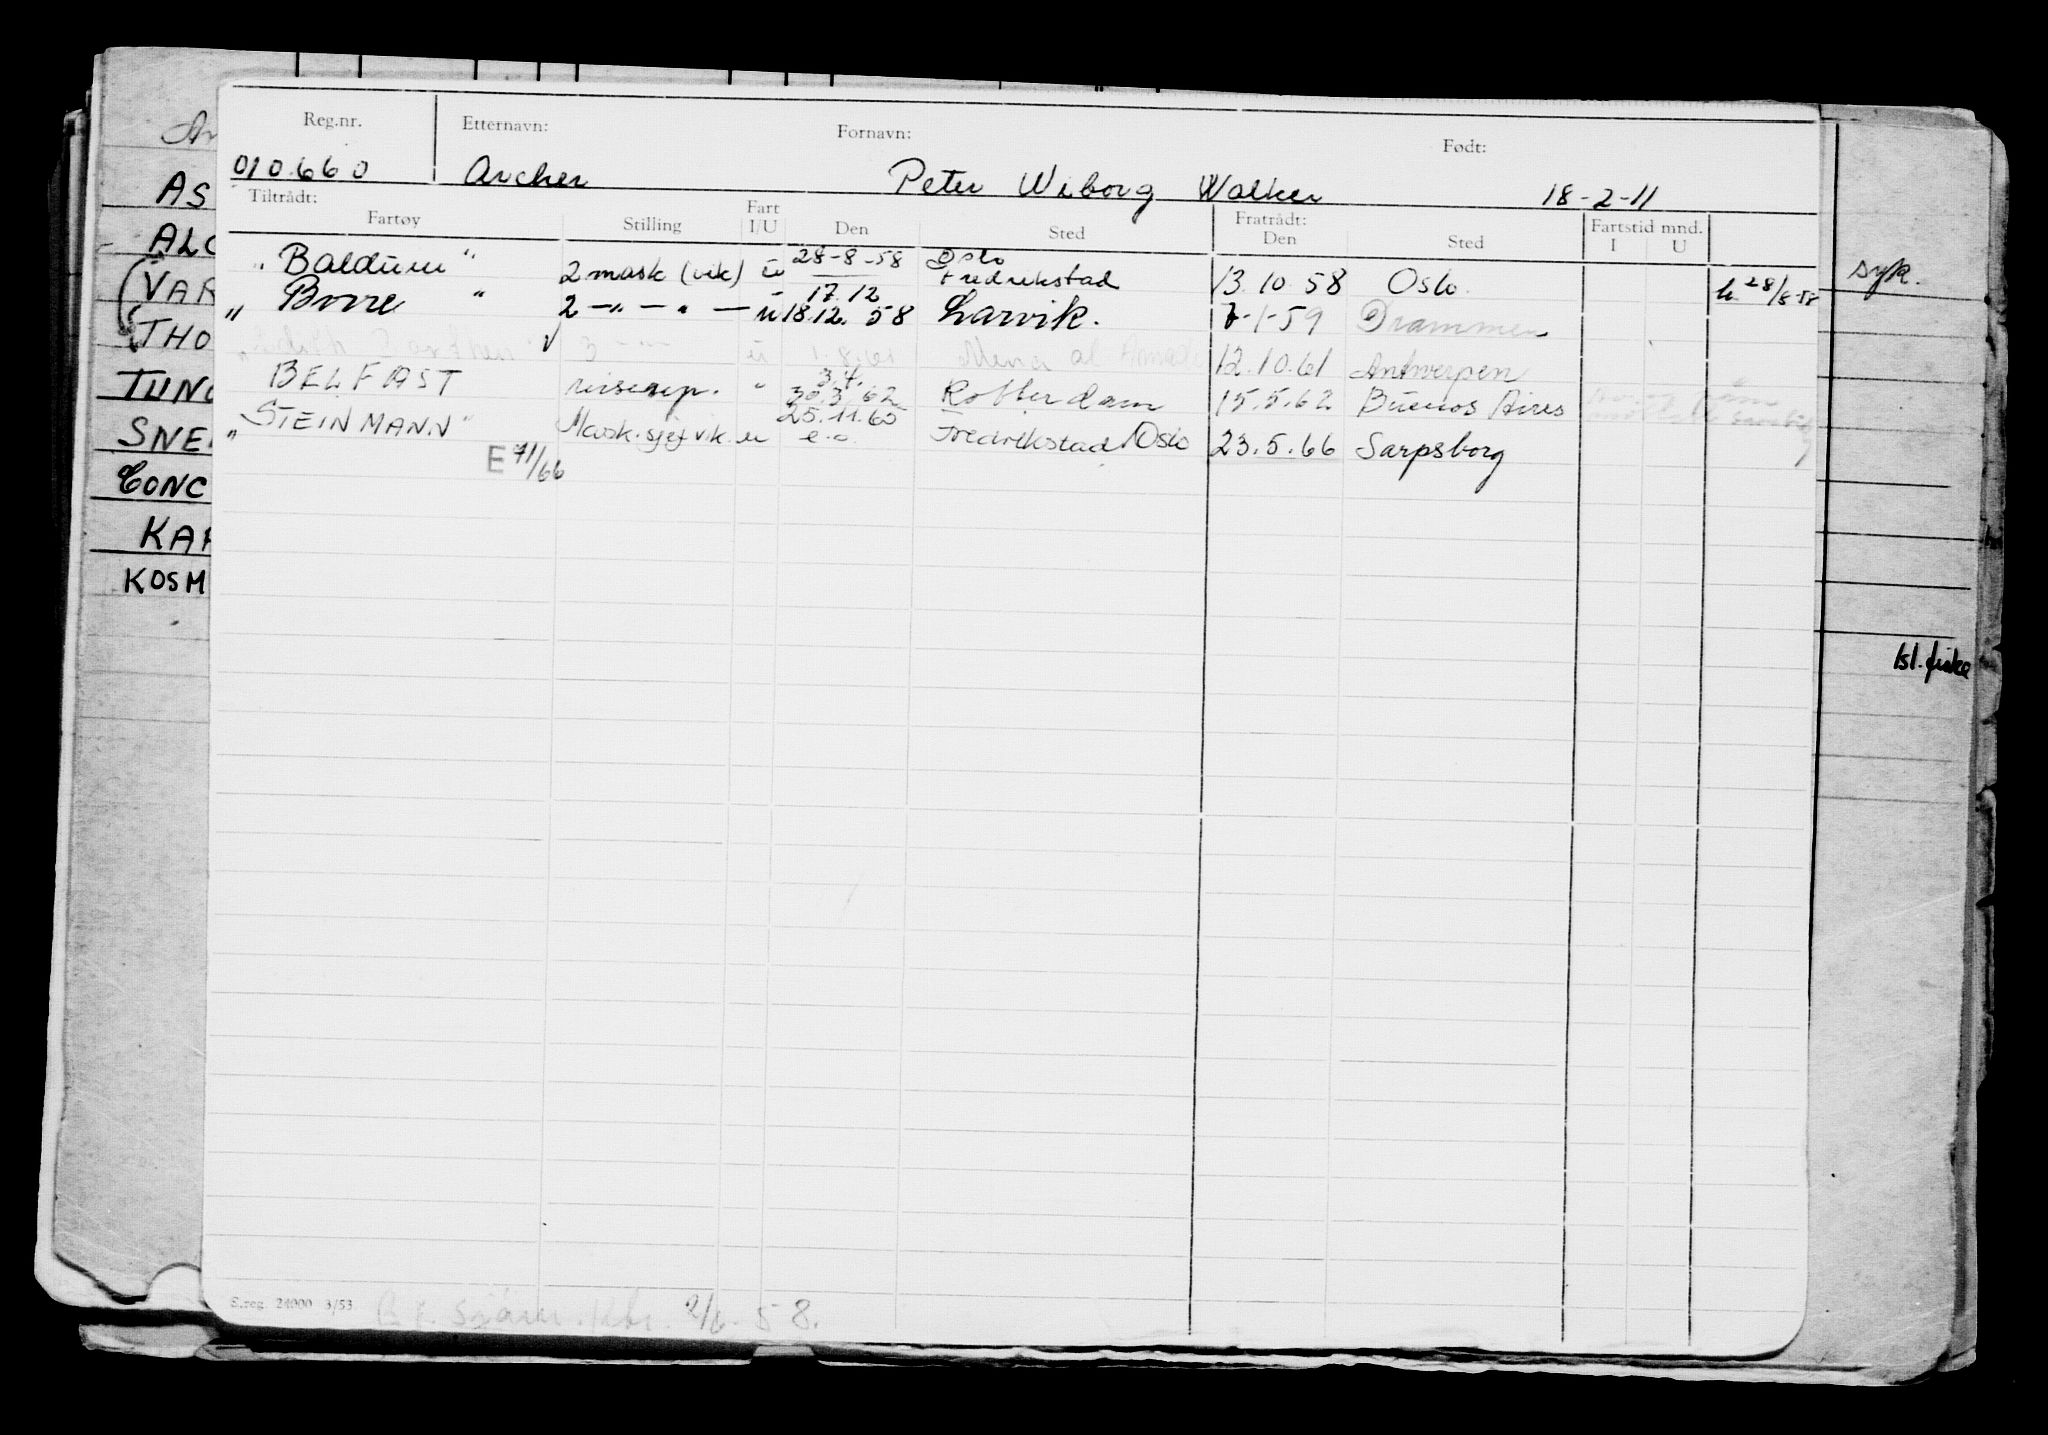 Reg.nr. Etternavn: Fornavn: Født:
010660 Archer Peter Wiborg Walker 18-2-11
Tiltrådt: Fart Fratrådt: Fartstid mnd.
Fartøy Stilling I/U Den Sted Den Sted I U
28-8-58 Oslo
"Balduin" 2 mask (vik) u Fredrikstad 13.10.58 Oslo 28/8-58
17.12
"Borre" 2 -"- " - u 18.12.58 Larvik. 7-1-59 Drammen
3 -"- u 1.8.61 Mena al 12.10.61 Antwerpen
3.4.
BELFAST reiserep. " 30.3.62 Rotterdam 15.5.62 Buenos Aires
25.11.65
"STEINMANN" Mask.sjef vik. u e.o. Fredrikstad/Oslo 23.5.66 Sarpsborg
E 71/66
S.reg. 24000 3/53 2/6.58.
AS
ALC
(VAR
THO
TUNG
SNE
CONC
KAR
KOSM
syk.
Isl.fiske